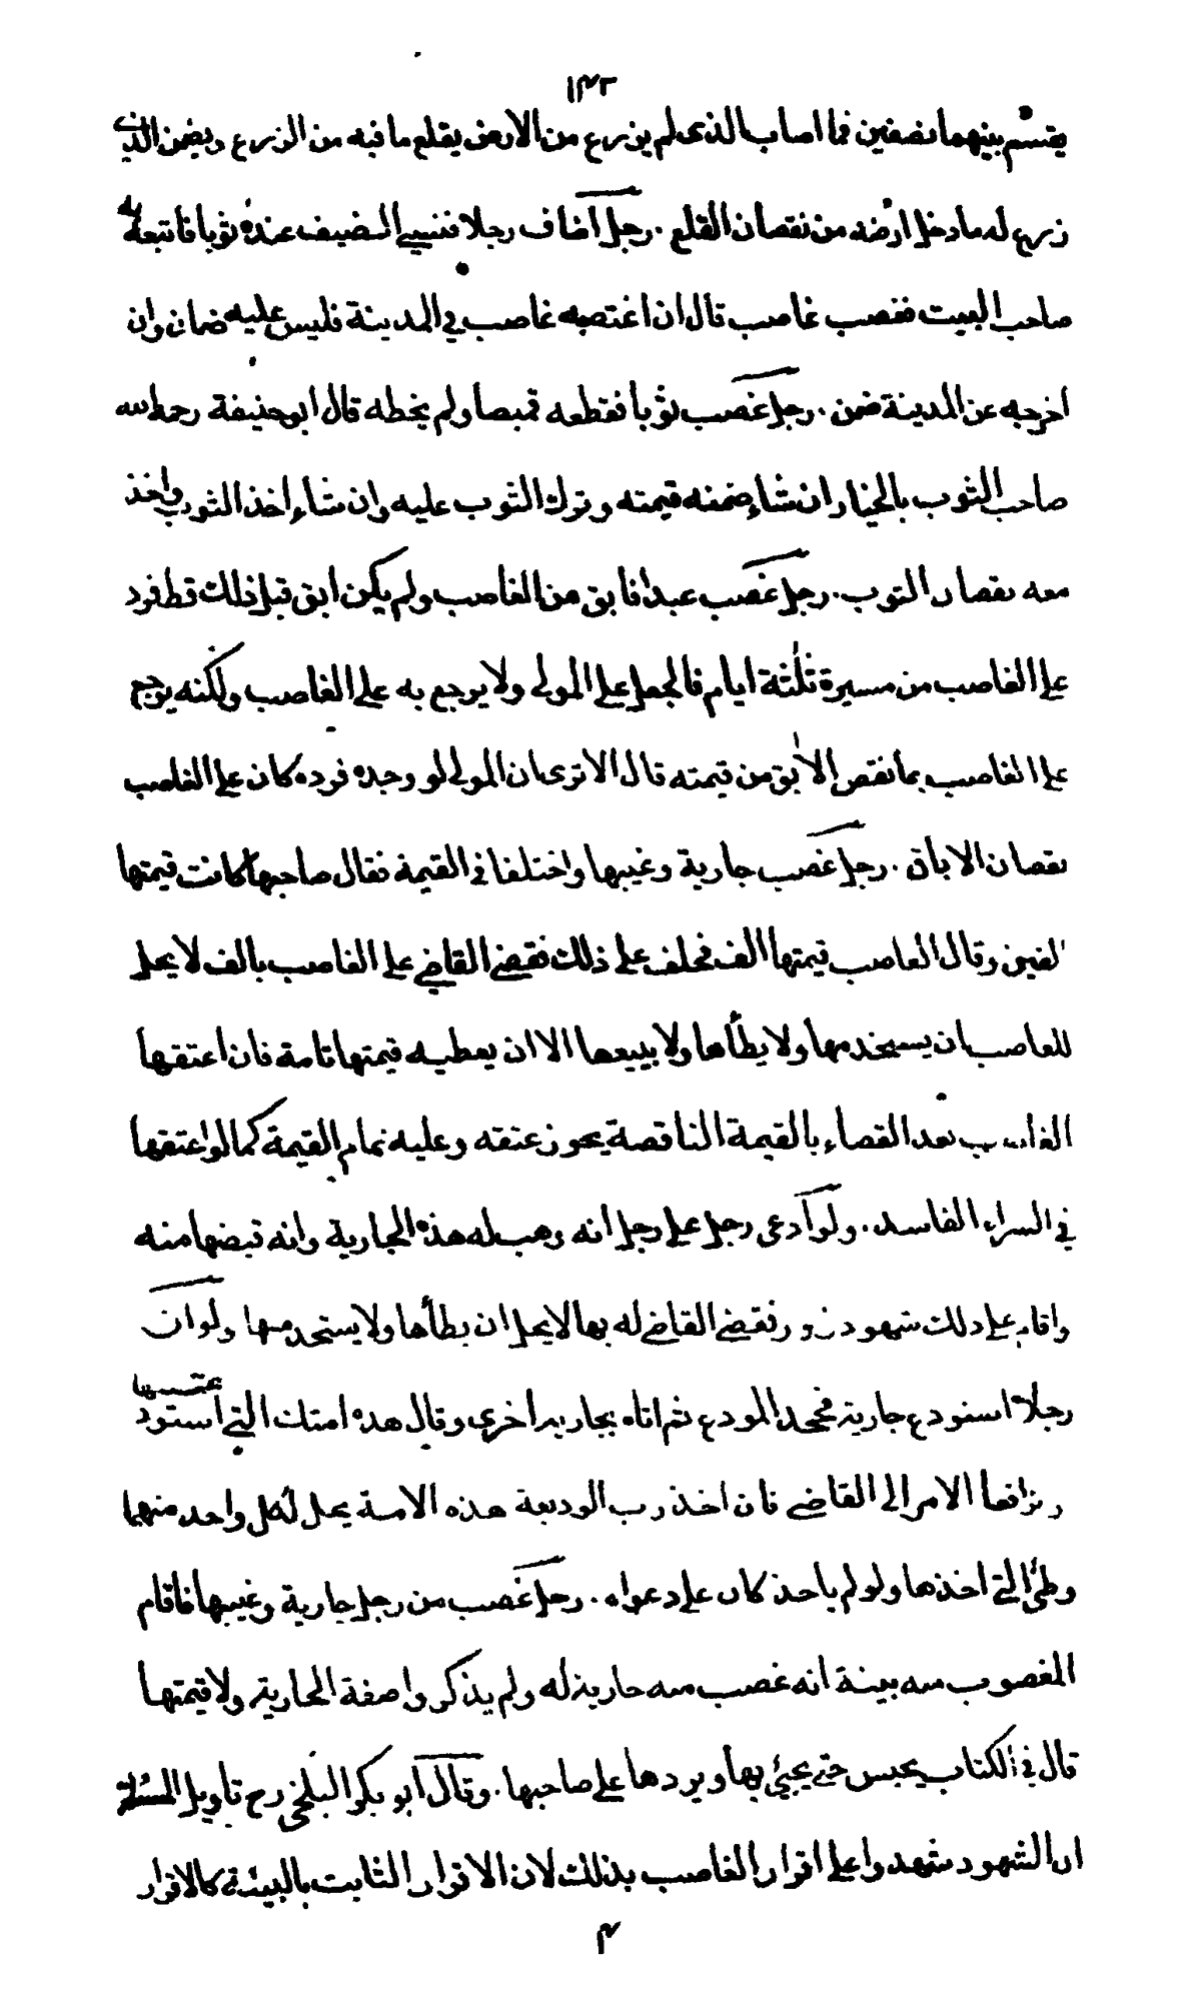 ١٤٢
يقسم بينهما نصفين فما اصاب الذى لم يزرع من الارض يقلع ما فيه من الزرع ويضمن الذى
زرع له ما دخل ارضه من نقصان القلع . رجل اضاف رجلا فنسى المضيف عنده ثوبا فاتبعه به
صاحب البيت فغصب غاصب قال ان اغتصبه غاصب في المدينة فليس عليه ضمان وان
اخرجه عن المدينة ضمن . رجل غصب ثوبا فقطعه قميصا ولم يخطه قال ابو حنيفة رحمه الله
صاحب الثوب بالخيار ان شاء ضمنه قيمته وترك الثوب عليه وان شاء اخذ الثوب واخذ
معه نقصان الثوب . رجل غصب عبدا فابق من الغاصب ولم يكن ابق قبل ذلك قط فرد
على الغاصب من مسيرة ثلثة ايام فالجعل على المولى ولا يرجع به على الغاصب ولكنه يرجع
على الغاصب بما نقص الابق من قيمته قال الا ترى ان المولى لو وجده فرده كان على الغاصب
نقصان الاباق . رجل غصب جارية وغيبها واختلفا في القيمة فقال صاحبها كانت قيمتها
الفين وقال الغاصب قيمتها الف فحلف على ذلك فقضى القاضي على الغاصب بالف لا يحل
للغاصب ان يستخدمها ولا يطأها ولا يبيعها الا ان يعطيه قيمتها تامة فان اعتقها
الغاصب بعد القضاء بالقيمة الناقصة يجوز عتقه وعليه تمام القيمة كما لو اعتقها
في الشراء الفاسد . ولو ادعى رجل على رجل انه وهب له هذه الجارية وانه قبضها منه
واقام على ذلك شهود زور فقضى القاضي له بها لا يحل ان يطأها ولا يستخدمها ولو ان
رجلا استودع جارية فجحد المودع ثم اتاه بجارية اخرى وقال هذه امتك التي استود عتنيها
وترافعا الامر الى القاضي فان اخذ رب الوديعة هذه الامة يحل لكل واحد منهما
وطئ التي اخذها ولو لم ياخذ كان على دعواه . رجل غصب من رجل جارية وغيبها فاقام
المغصوب منه بينة انه غصب منه جارية له ولم يذكروا صفة الجارية ولا قيمتها
قال في الكتاب يحبس حتى يجيئ بها ويردها على صاحبها . وقال ابو بكر البلخي رح تاويل المسئلة
ان الشهود شهدوا على اقرار الغاصب بذلك لان الاقرار الثابت بالبينة كالاقرار
م